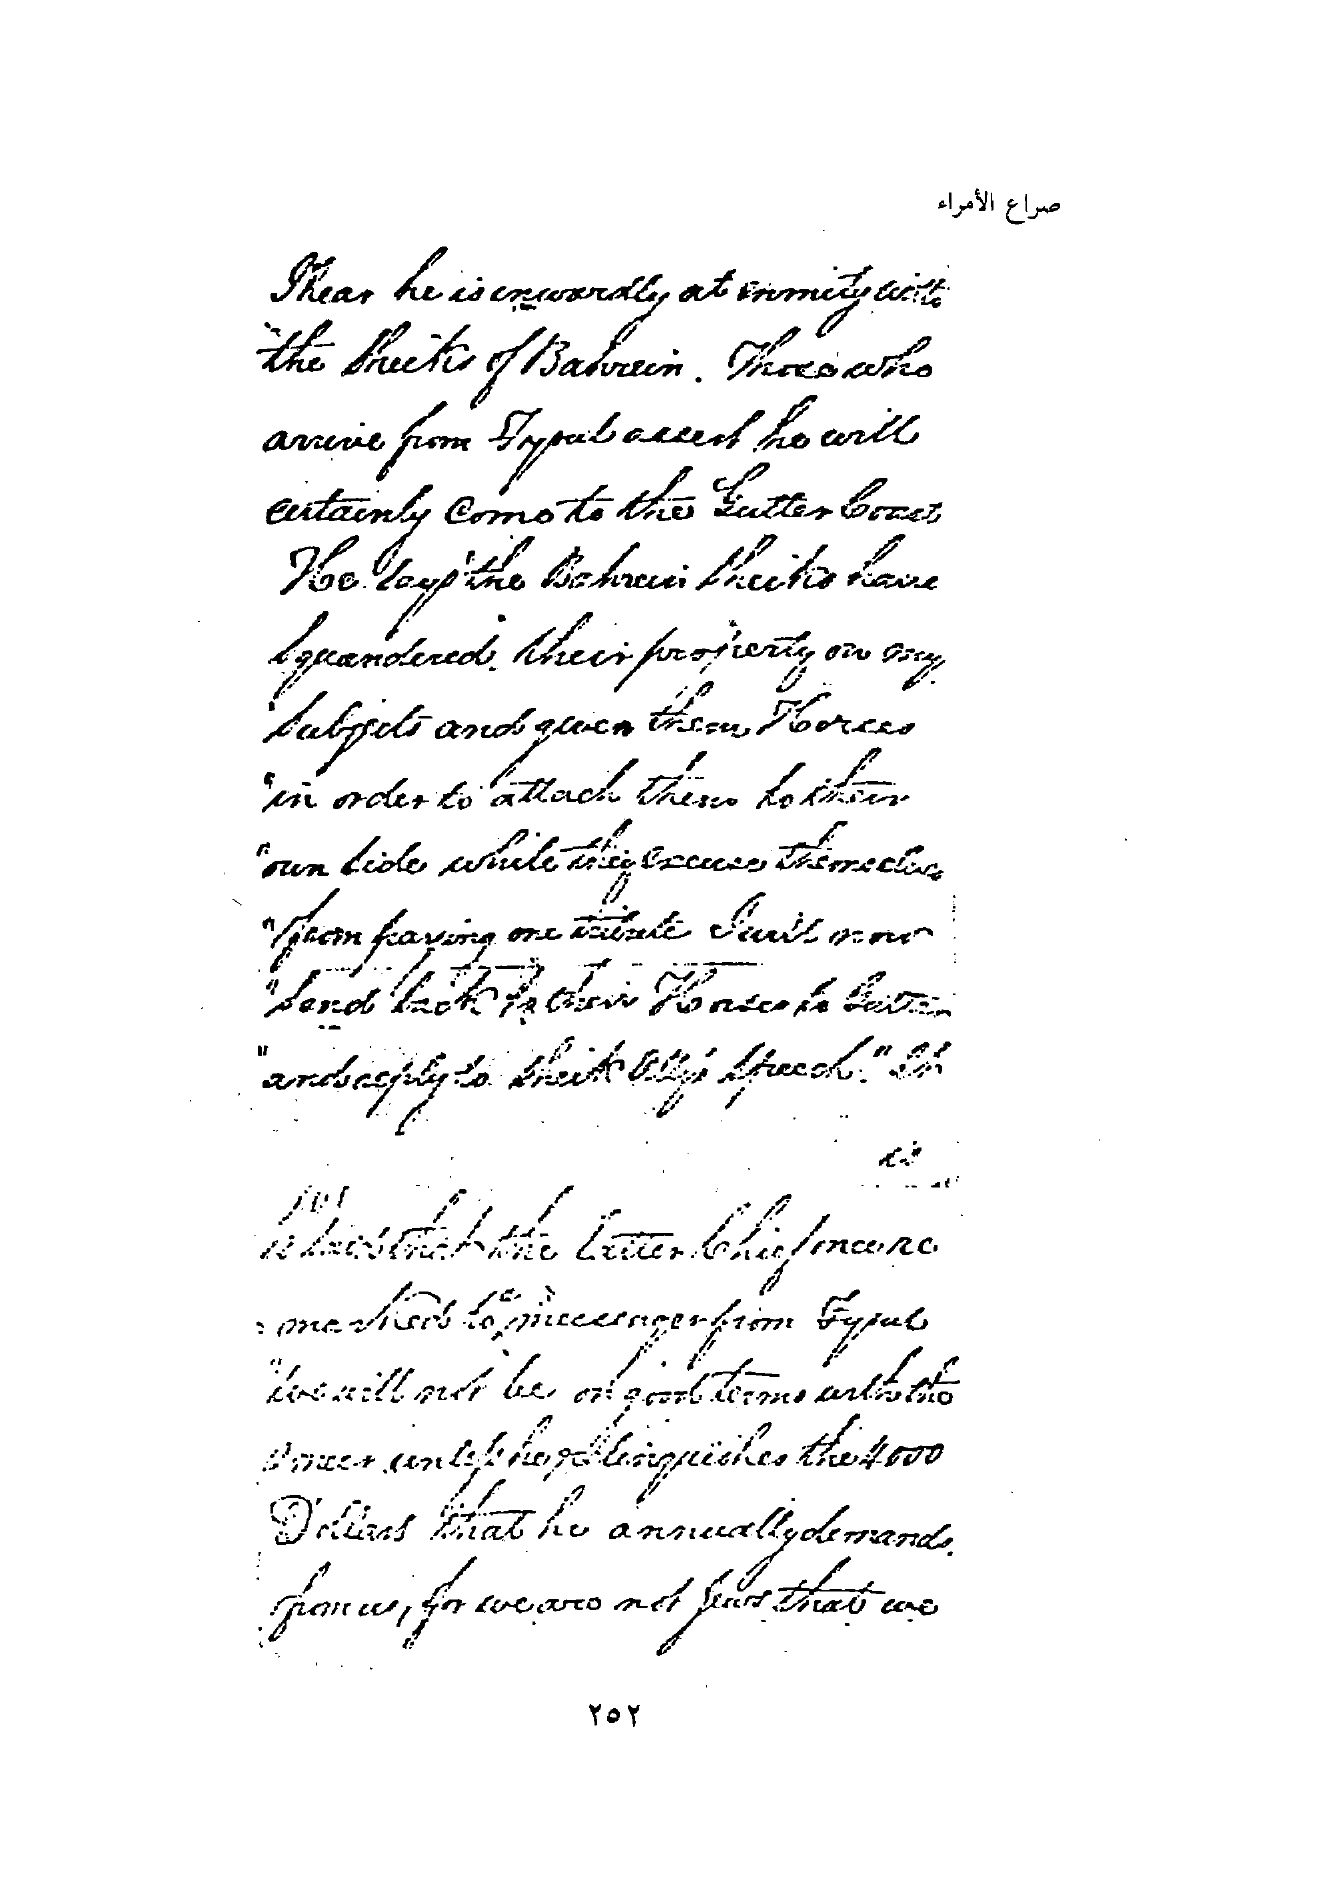 صراع الأمراء
I hear he is inwardly at enmity with
"the Sheiks of Bahrein. Those who
arrive from Fysul assert he will
certainly come to the Gutter Coast
He says "the Bahrein Sheiks have
squandered their property on my
"subjects and given them Horses
"in order to attach them to their
"own side while they excuse themselves
"from paying me tribute I will now
"send back to their Horses to Gutter
"and reply to Sheik Ally's speech." It
is
is said that the latter Chief once re
marked to a messenger from Fysul
"we will not be on good terms with the
unless he relinquishes the 4000
Dollars that he annually demands
from us, for we are not that we
٢٥٢